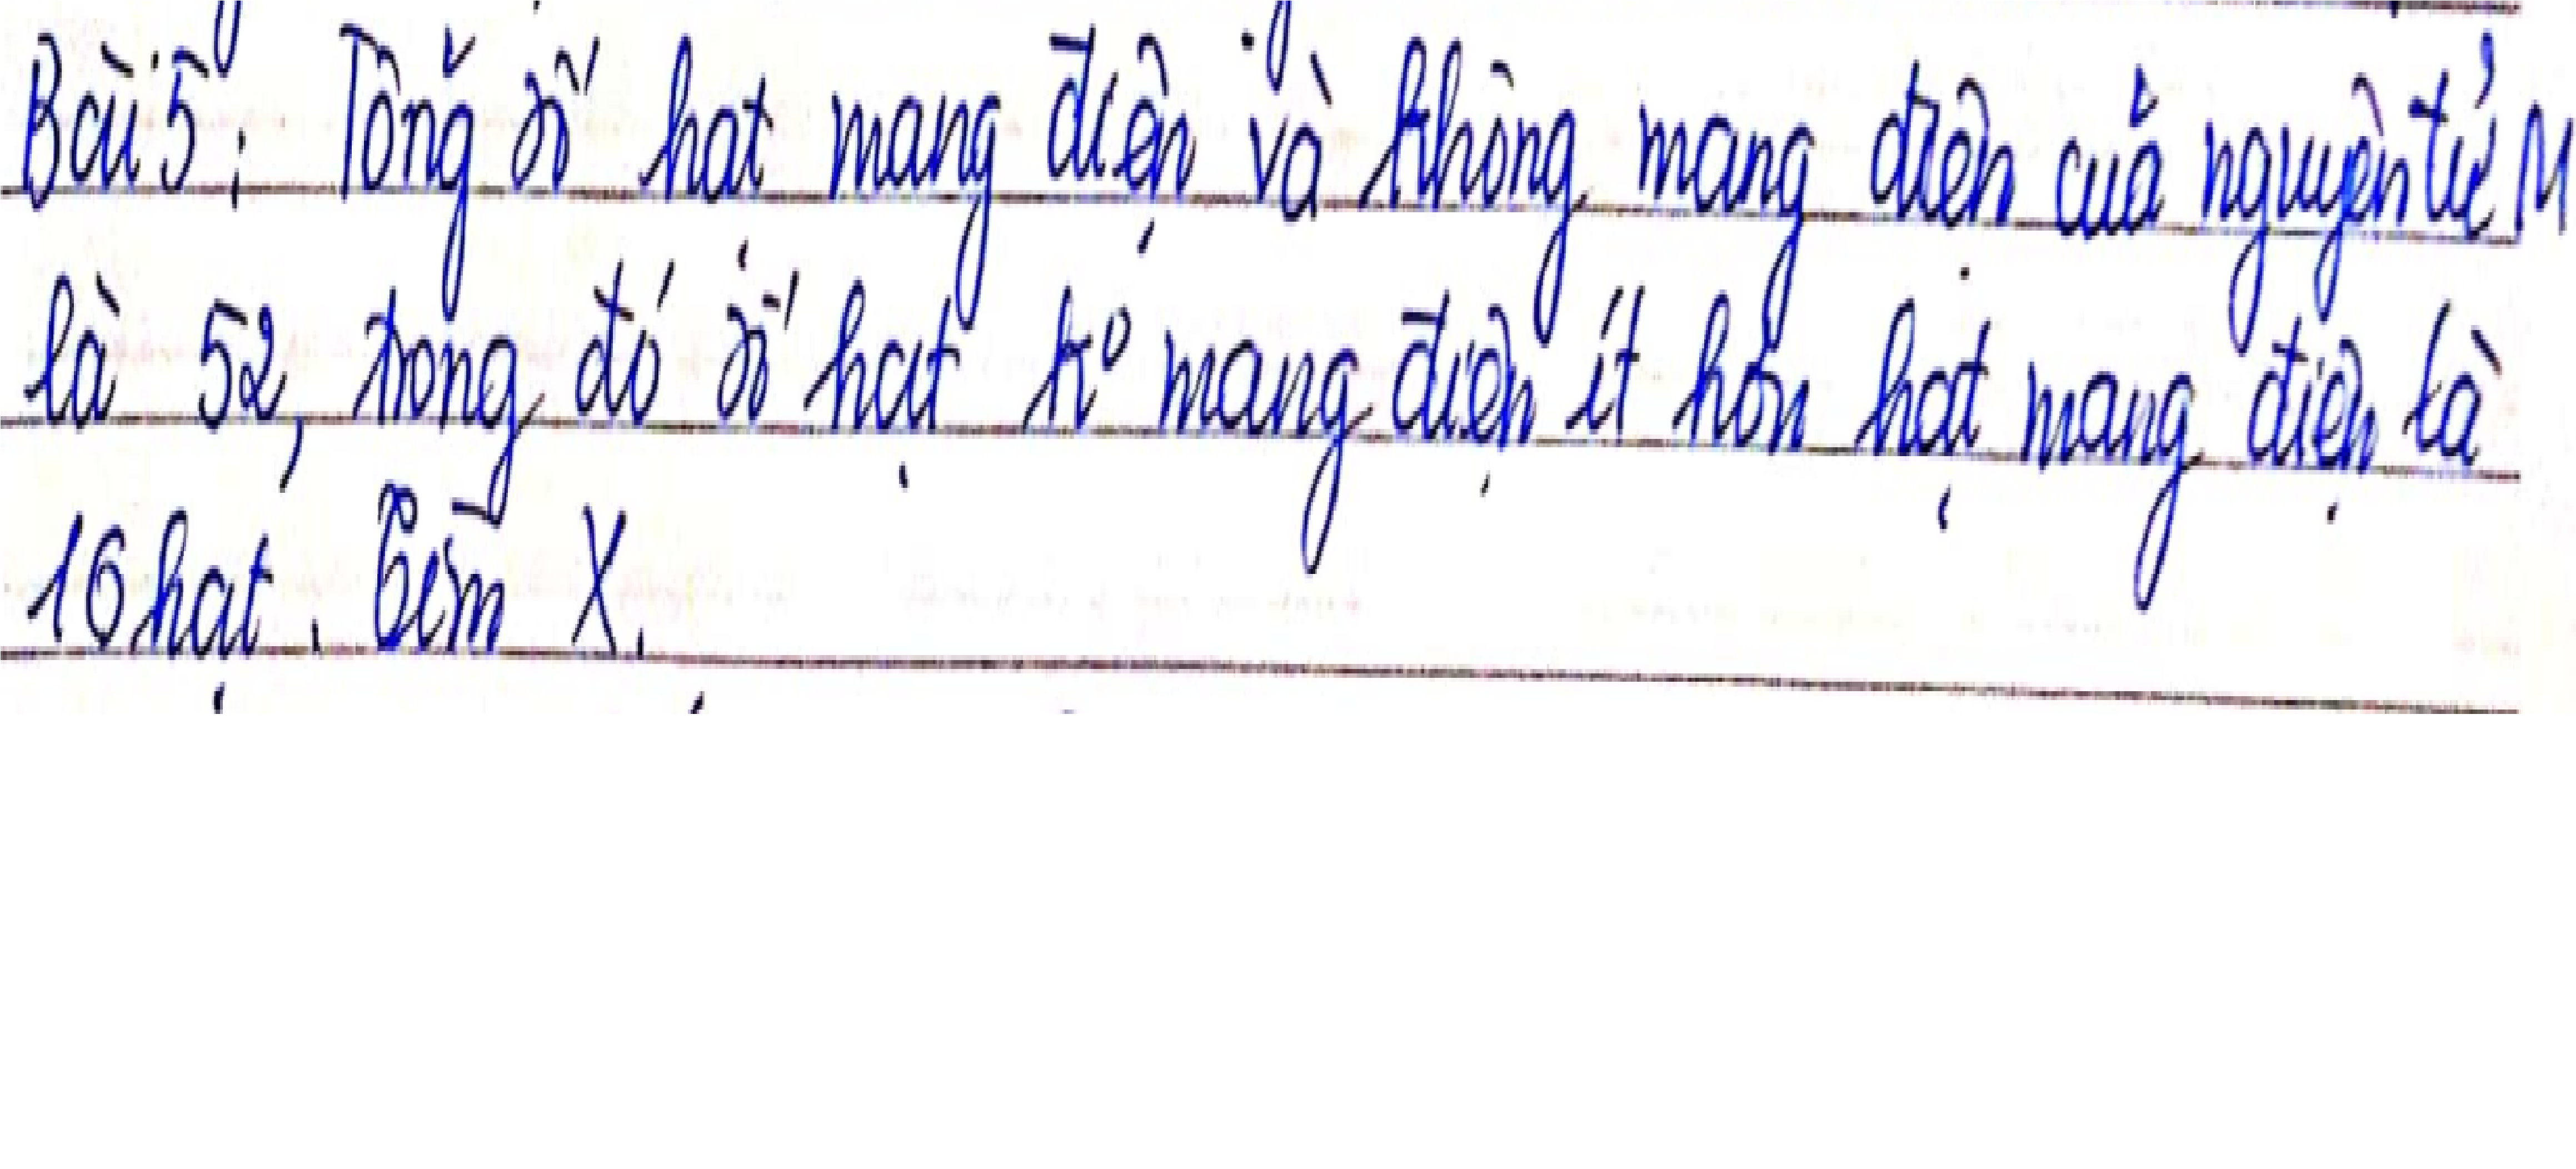 Bài 5: Tổng số hạt mang điện và không mang điện của nguyên tử M
là 52, trong đó số hạt k⁰ mang điện ít hơn hạt mang điện là
16 hạt. Tìm X.